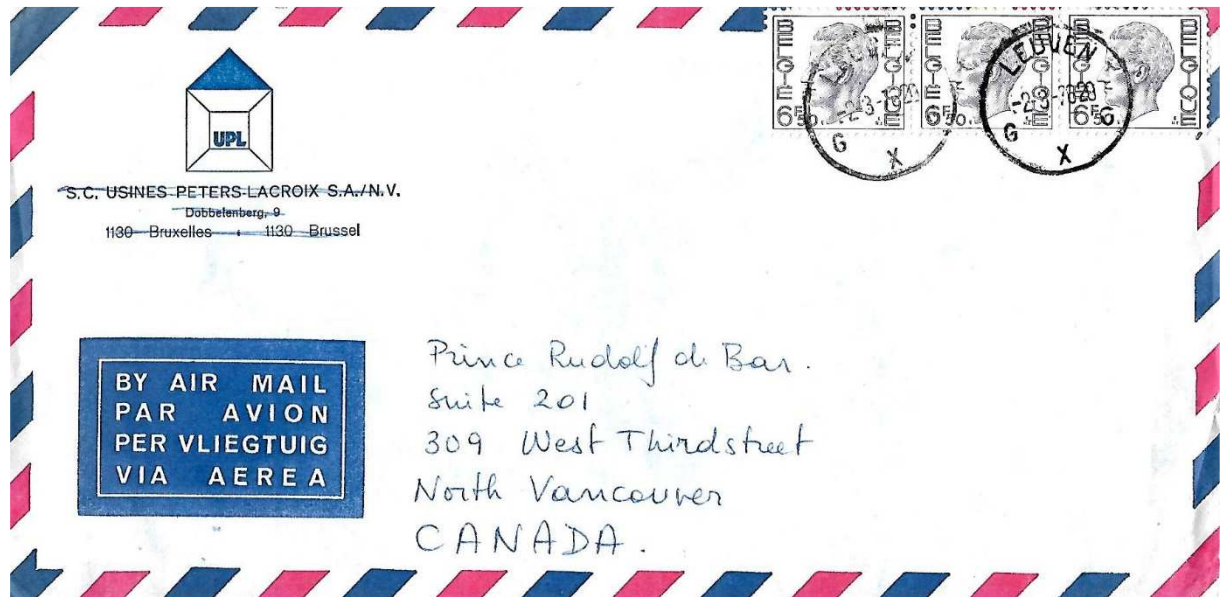 UPL
S.C. USINES PETERS-LACROIX S.A./N.V.
Dobbelenberg, 9
1130 Bruxelles 1130 Brussel
BELGIE BELGIQUE
6F50
BELGIE BELGIQUE
6F50
BELGIE BELGIQUE
6F50
LEUVEN
G X
LEUVEN
G X G
BY AIR MAIL
PAR AVION
PER VLIEGTUIG
VIA AEREA
Prince Rudolf de Bar.
Suite 201
309 West Thirdstreet
North Vancouver
CANADA.